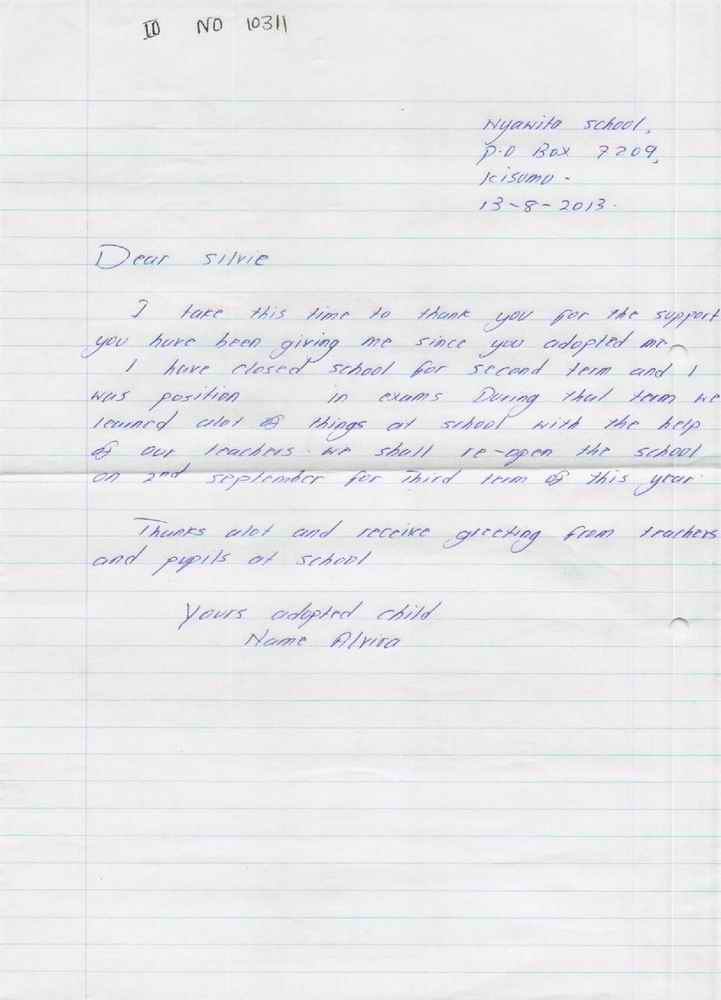 ID NO 10311
Nyawita school,
P.O Box 7209,
Kisumu -
13-8-2013.
Dear Silvie
I take this time to thank you for the support
you have been giving me since you adopted me
I have closed school for second term and I
was position in exams During that term we
learned alot of things at school with the help
of our teachers. we shall re-open the school
on 2nd september for Third term of this year.
Thanks alot and receive greeting from teachers
and pupils at school
Yours adopted child
Name Alvira